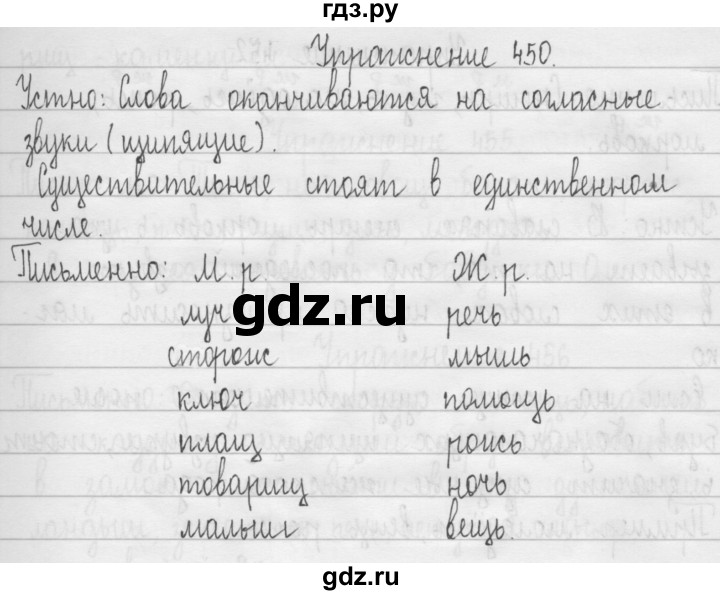 гдз.ру
Упражнение 450.
Устно: Слова оканчиваются на согласные
звуки (шипящие).
Существительные стоят в единственном
числе.
Письменно: М. р. Ж. р.
луч речь
сторож мышь
ключ помощь
плащ рожь
товарищ ночь
малыш вещь
gdz.ru
gdz.ru